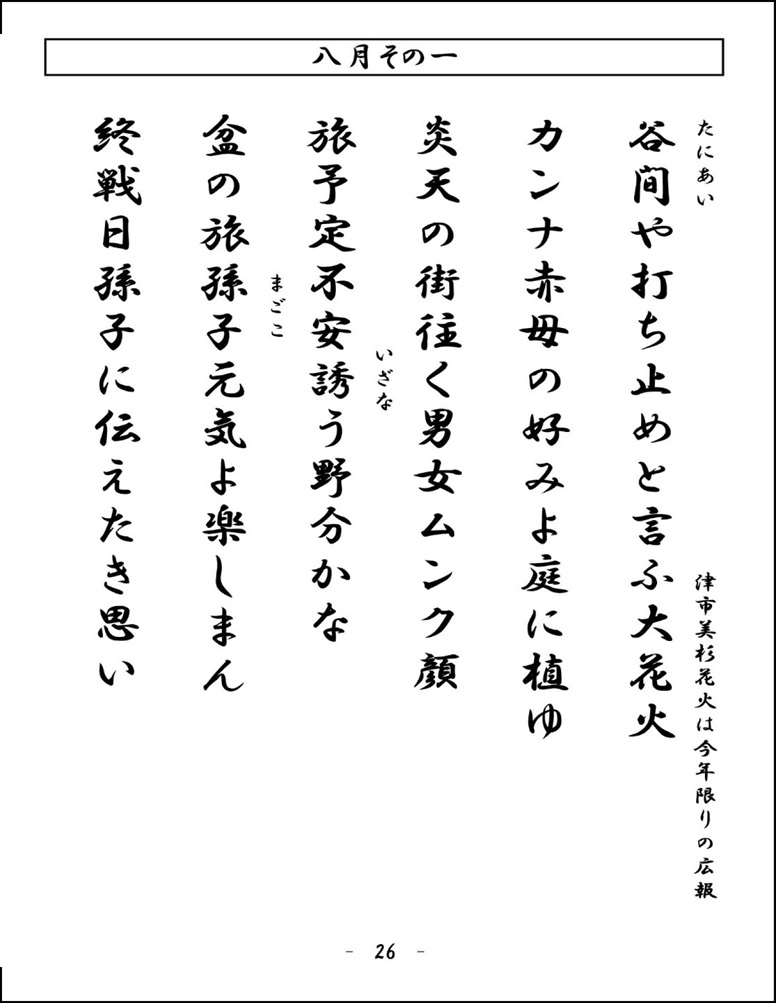 八月その一
たにあい
谷間や打ち止めと言ふ大花火
津市美杉花火は今年限りの広報
カンナ赤母の好みよ庭に植ゆ
炎天の街往く男女ムンク顔
いざな
旅予定不安誘う野分かな
まごこ
盆の旅孫子元気よ楽しまん
終戦日孫子に伝えたき思い
- 26 -